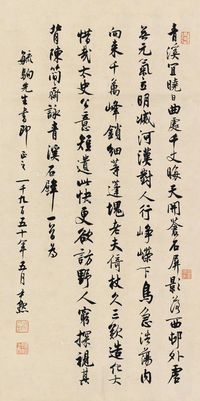 青溪宜曉日曲處千丈晦天開蒼石屏影落西邨外虛
無元氣立明滅河漢對人行崢嶸下鳥急浩蕩內
向來千萬峰鎖細等蓬塊老夫倚杖久三歎造化大
惜哉太史公意短遺此快更欲訪野人窮探視其
背陳簡齋詠青溪石壁一首為
先生書即正之
一千九百五十年五月尹默